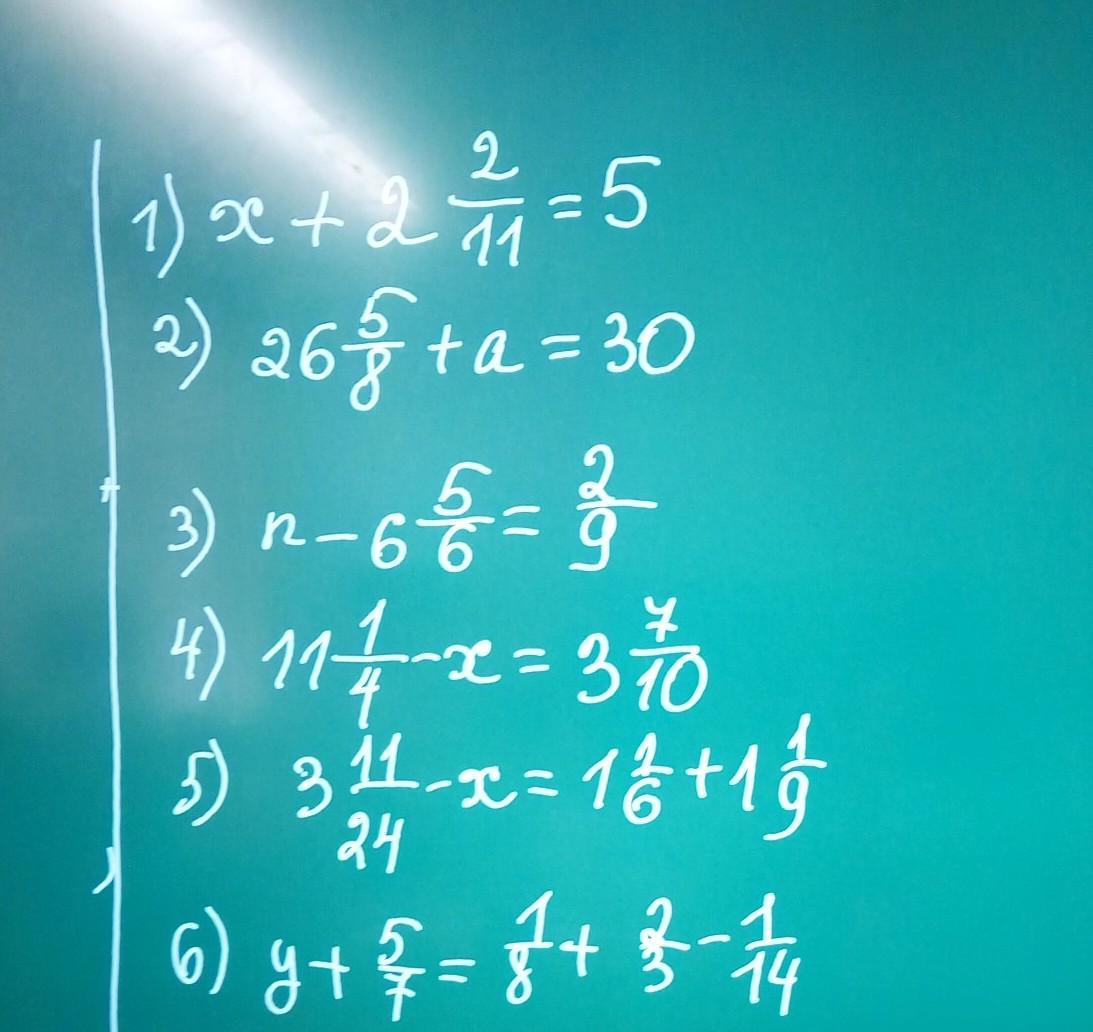 1) x + 2 2/11 = 5
2) 26 5/8 + a = 30
3) n - 6 5/6 = 2/9
4) 11 1/4 - x = 3 7/10
5) 3 11/24 - x = 1 1/6 + 1 1/9
6) y + 5/7 = 1/8 + 2/3 - 1/14